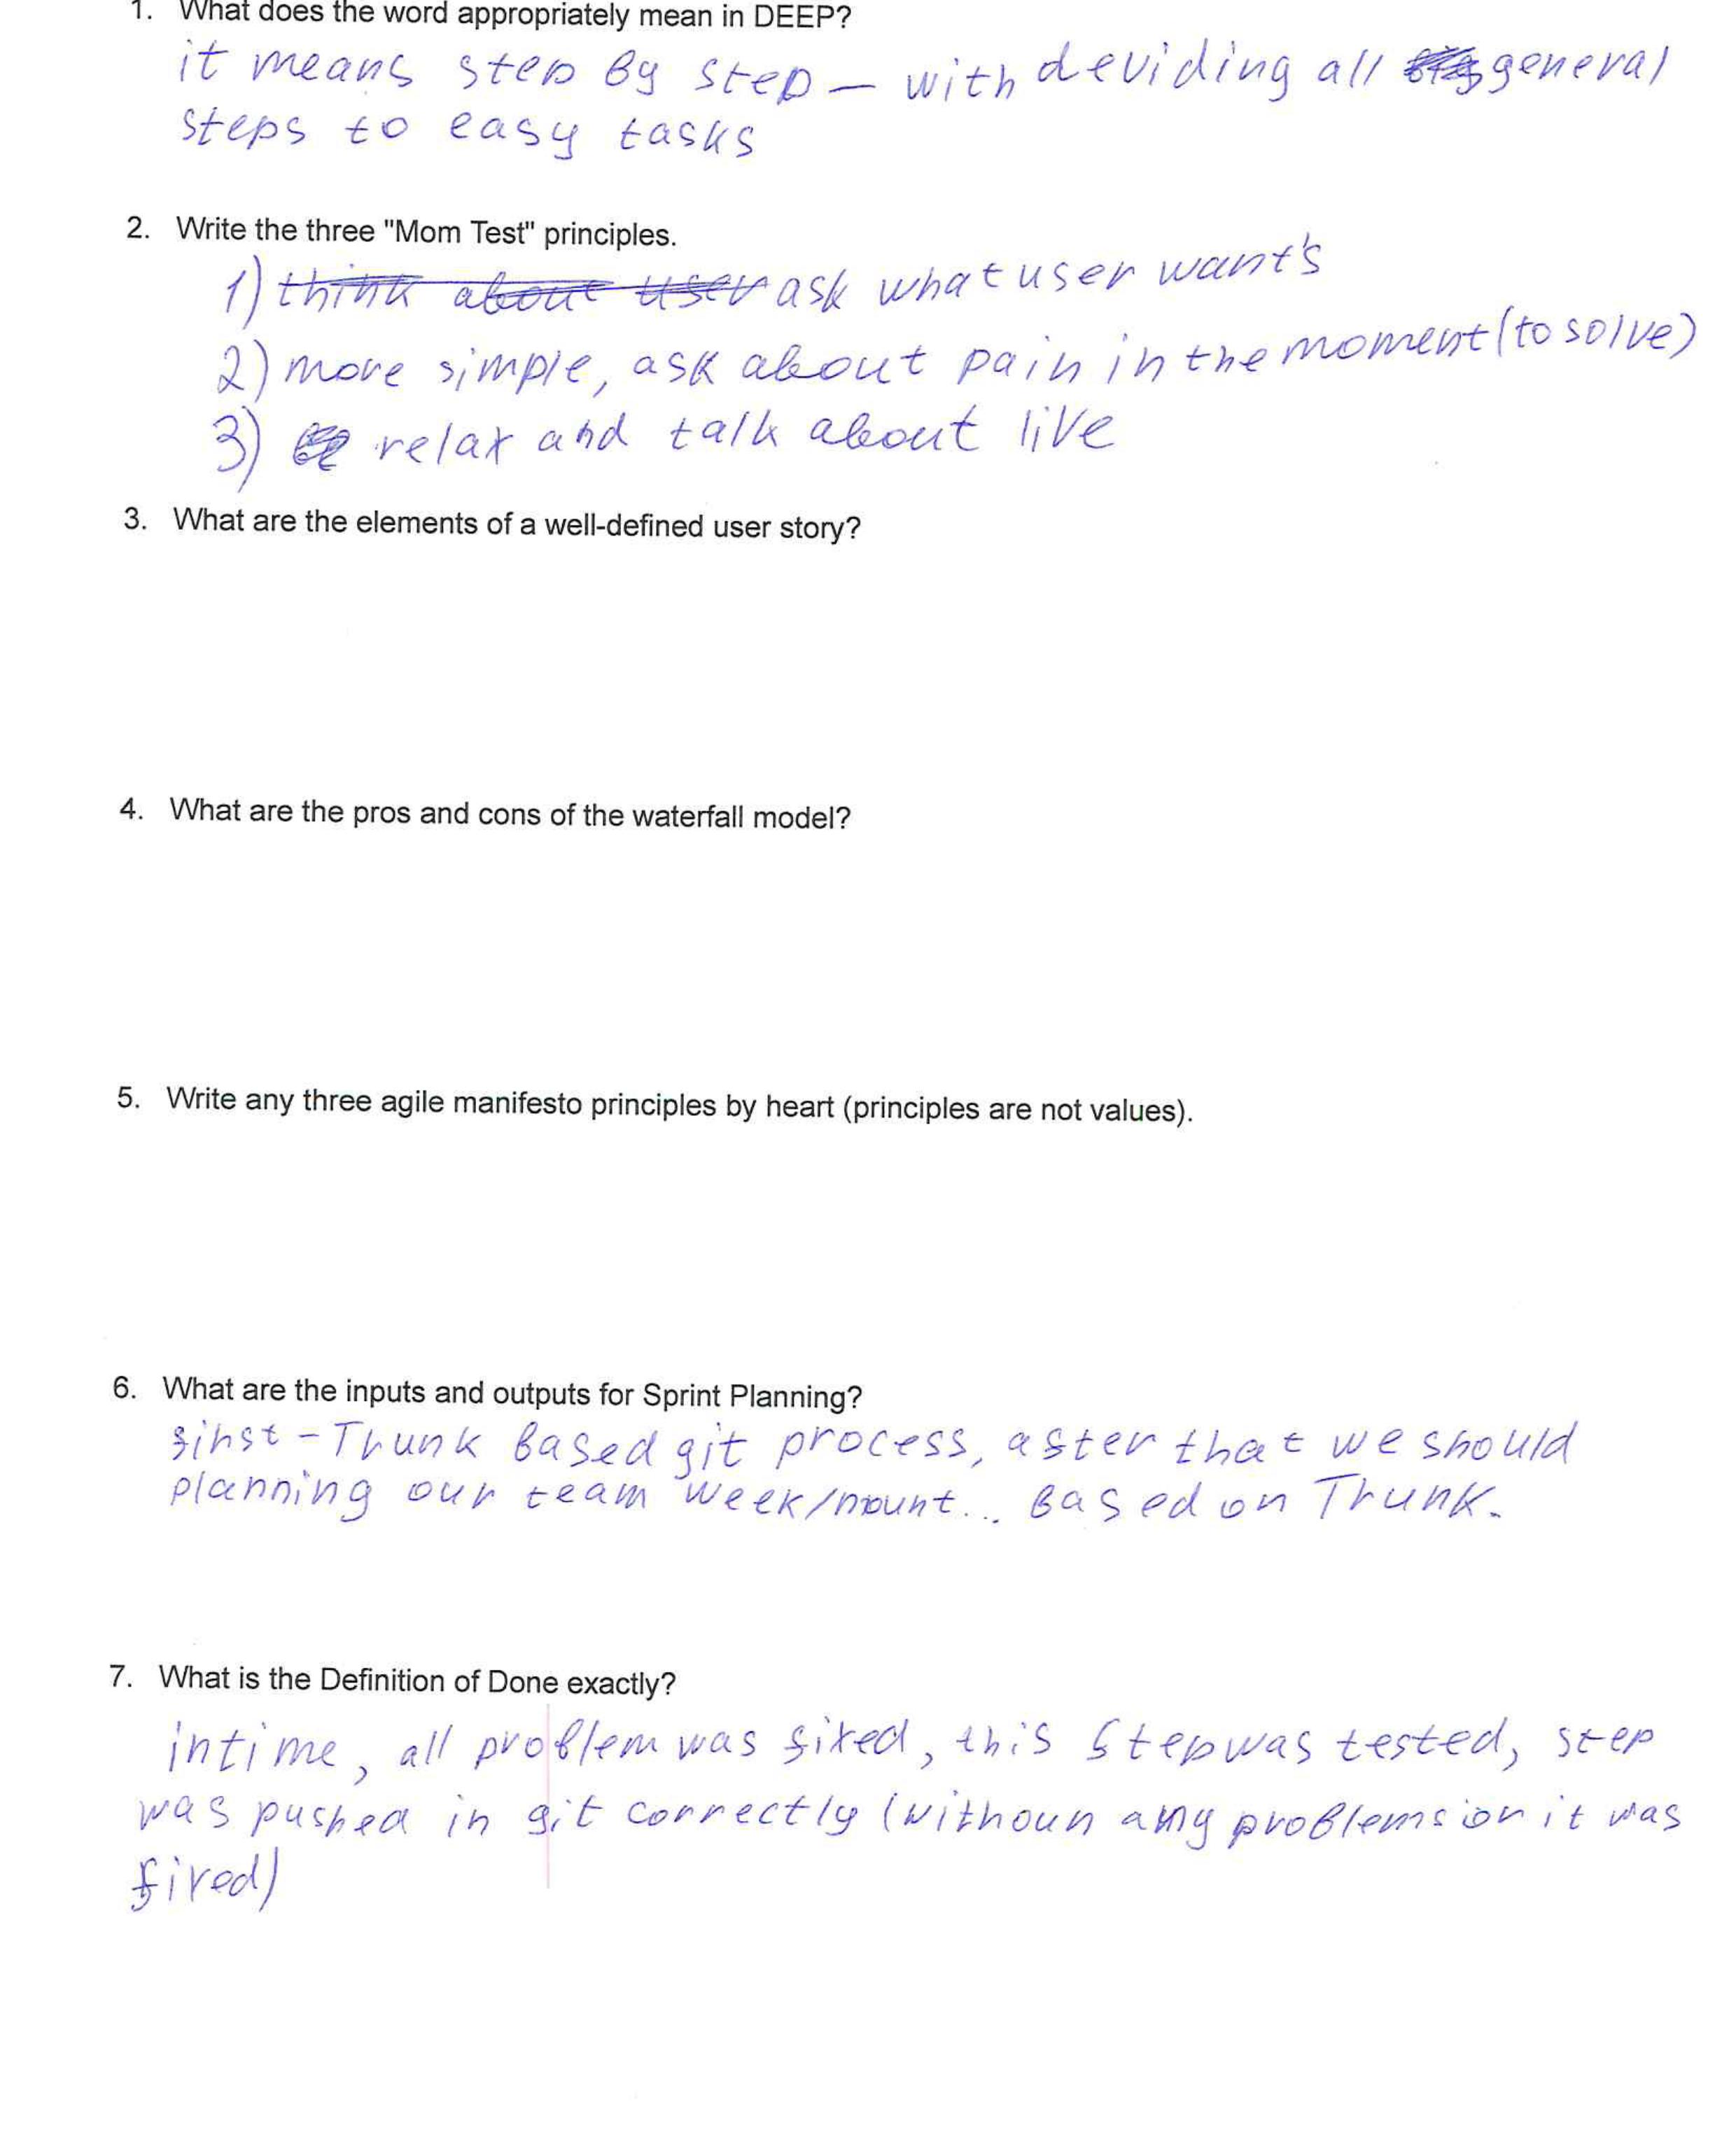 1. What does the word appropriately mean in DEEP?
it means step by step – with deviding all general
steps to easy tasks
2. Write the three "Mom Test" principles.
1) think about user ask what user want's
2) more simple, ask about pain in the moment (to solve)
3) relax and talk about live
3. What are the elements of a well-defined user story?
4. What are the pros and cons of the waterfall model?
5. Write any three agile manifesto principles by heart (principles are not values).
6. What are the inputs and outputs for Sprint Planning?
first – Trunk based git process, after that we should
planning our team week/mount... Based on Trunk.
7. What is the Definition of Done exactly?
in time, all problem was fixed, this step was tested, step
was pushed in git correctly (withoun any problems or it was
fixed)